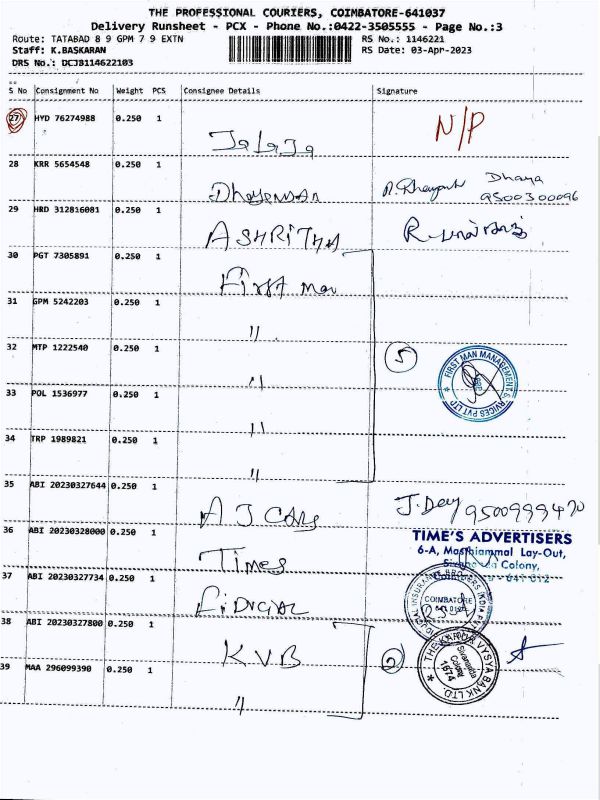 THE PROFESSIONAL COURIERS, COIMBATORE-641037
Delivery Runsheet - PCX - Phone No.:0422-3505555 - Page No.:3
Route: TATABAD 8 9 GPM 7 9 EXTN
RS No.: 1146221
Staff: K.BASKARAN
RS Date: 03-Apr-2023
DRS No.: DCJB114622103
S No Consignment No Weight PCS Consignee Details Signature
27 HYD 76274988 0.250 1 N/P
28 KRR 5654548 0.250 1 Dhaya
9500300096
29 HRD 312816081 0.250 1 ASHRITHA
30 PGT 7305891 0.250 1 First Man
31 GPM 5242203 0.250 1 "
32 MTP 1222540 0.250 1 " 5
FIRST MAN MANAGEMENT SERVICES PVT LTD
33 POL 1536977 0.250 1 "
34 TRP 1989821 0.250 1 "
35 ABI 20230327644 0.250 1 AJ Cars J. Dey
36 ABI 20230328000 0.250 1 Times
TIME'S ADVERTISERS
6-A, Lay-Out,
Colony,
Coimbatore - 641 012
37 ABI 20230327734 0.250 1
INSURANCE BROKERS INDIA PVT
COIMBATORE
641 012
38 ABI 20230327800 0.250 1 KVB 2
THE KARUR VYSYA BANK LTD.
Sivananda
Colony
1674
39 MAA 296099390 0.250 1 "